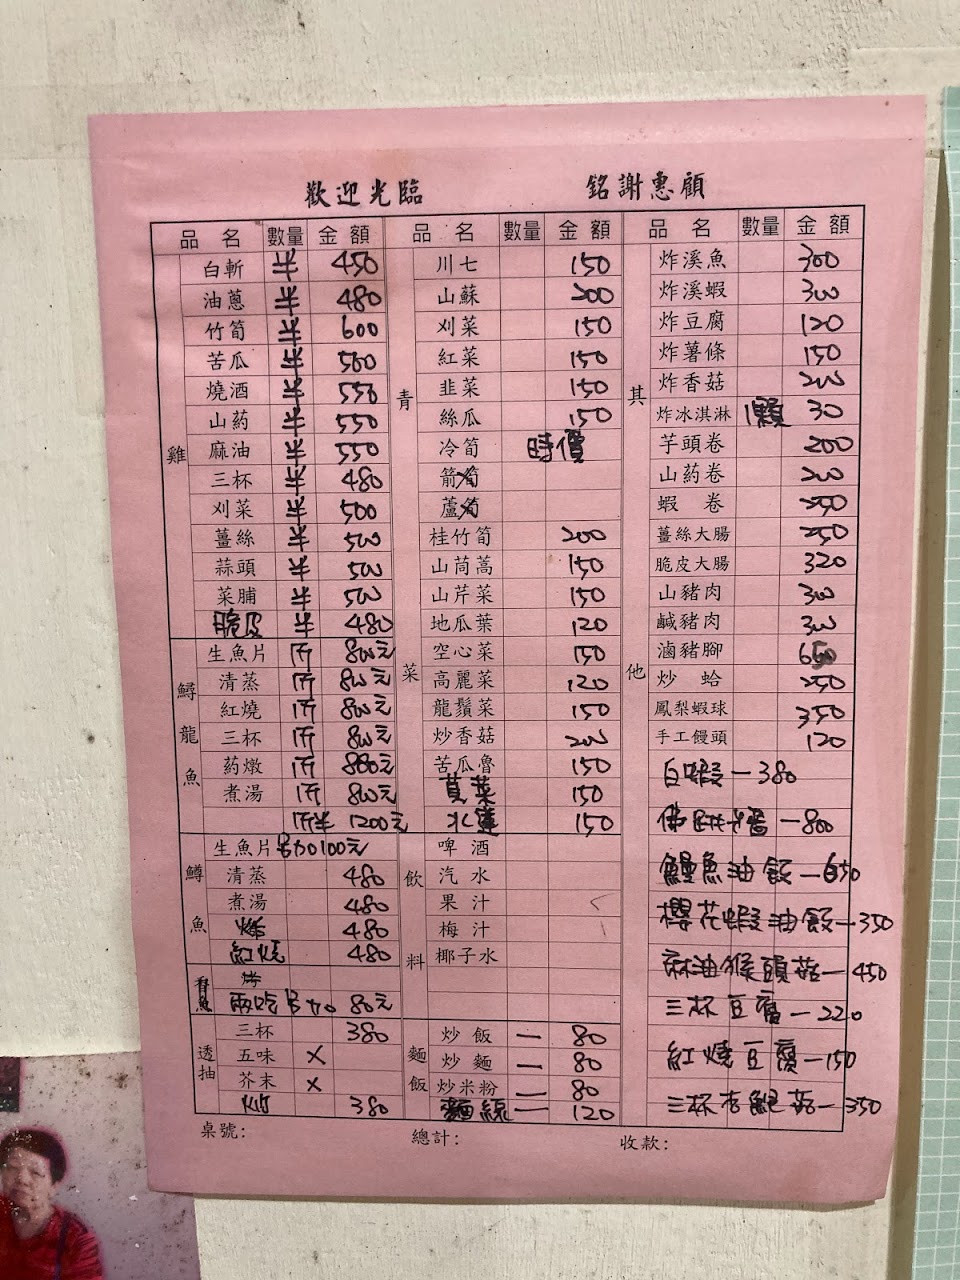 歡迎光臨 銘謝惠顧
品名 數量 金額 品名 數量 金額 品名 數量 金額
雞
白斬 半 450
油蔥 半 480
竹筍 半 600
苦瓜 半 500
燒酒 半 550
山药 半 550
麻油 半 550
三杯 半 480
刈菜 半 500
薑絲 半 500
蒜頭 半 500
菜脯 半 500
脆皮 半 480
鱘龍魚
生魚片 1斤 800元
清蒸 1斤 800元
紅燒 1斤 800元
三杯 1斤 800元
药燉 1斤 880元
煮湯 1斤 800元
1斤半 1200元
鱒魚
生魚片 另加100元
清蒸 480
煮湯 480
480
紅燒 480
香魚
烤
兩吃 另加 80元
透抽
三杯 380
五味 X
芥末 X
380
青菜
川七 150
山蘇 200
刈菜 150
紅菜 150
韭菜 150
絲瓜 150
冷筍 時價
箭筍
蘆筍
桂竹筍 200
山茼蒿 150
山芹菜 150
地瓜葉 120
空心菜 150
高麗菜 120
龍鬚菜 150
炒香菇 200
苦瓜魯 150
莧菜 150
水蓮 150
飲料
啤酒
汽水
果汁
梅汁
椰子水
麵飯
炒飯 一 80
炒麵 一 80
炒米粉 一 80
麵線 一 120
其他
炸溪魚 300
炸溪蝦 300
炸豆腐 120
炸薯條 150
炸香菇 200
炸冰淇淋 1顆 30
芋頭卷 200
山药卷 200
蝦卷 250
薑絲大腸 250
脆皮大腸 320
山豬肉 300
鹹豬肉 300
滷豬腳 650
炒蛤 250
鳳梨蝦球 350
手工饅頭 120
白蝦－380
佛跳墻－800
鱻魚油飯－650
櫻花蝦油飯－350
麻油猴頭菇－450
三杯豆腐－220
紅燒豆腐－150
三杯杏鮑菇－350
桌號: 總計: 收款: